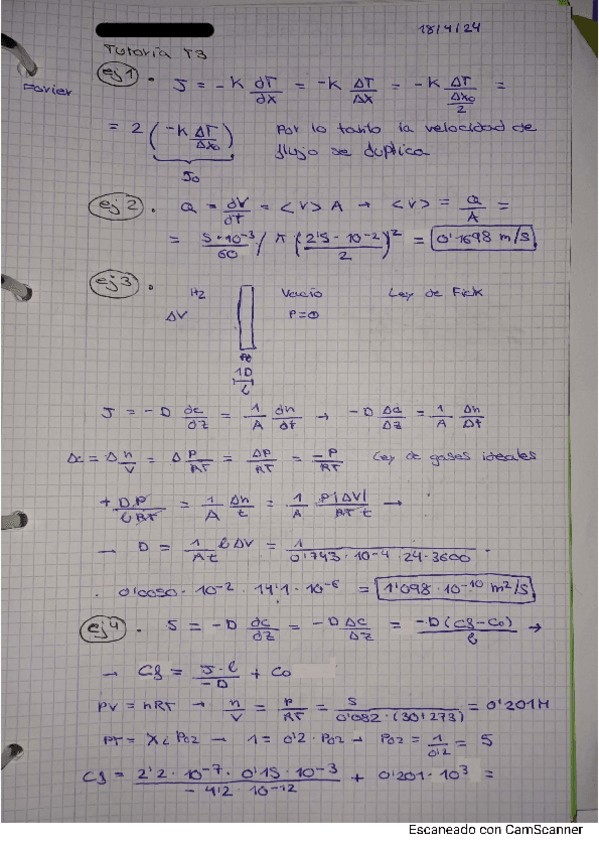 18/4/24
Tutoria T3
Forier
ej 1 . J = -K dT/dX = -K ΔT/ΔX = -K ΔT/(ΔX₀/2) =
= 2 (-K ΔT/ΔX₀) Por lo tanto la velocidad de
J₀ flujo se duplica
ej 2 . Q = dV/dt = <V> A → <V> = Q/A =
= 5·10⁻³/60 / π (2'5·10⁻²/2)² = 0'1698 m/s
ej 3 .
H₂ Vacío Ley de Fick
ΔV P=0
1D
L
J = -D dc/dz = 1/A dn/dt → -D Δc/Δz = 1/A Δn/Δt
Δc = Δ n/V = Δ P/RT = ΔP/RT = -P/RT Ley de gases ideales
+ D·P/(L RT) = 1/A Δn/t = 1/A P|ΔV|/(RT t) →
→ D = 1/(At) ℓΔV = 1/(0'743·10⁻⁴·24·3600) ·
· 0'0050·10⁻²·14'1·10⁻⁶ = 1'098·10⁻¹⁰ m²/s
ej 4 . J = -D dc/dz = -D Δc/Δz = -D(Cf-C₀)/ℓ →
→ Cf = J·ℓ/-D + C₀
PV = nRT → n/V = P/RT = 5/(0'082·(30+273)) = 0'201M
PT = Xi PO₂ → 1 = 0'2·PO₂ → PO₂ = 1/0'2 = 5
Cf = 2'2·10⁻⁷·0'15·10⁻³/-4'2·10⁻¹² + 0'201·10³ =
Escaneado con CamScanner